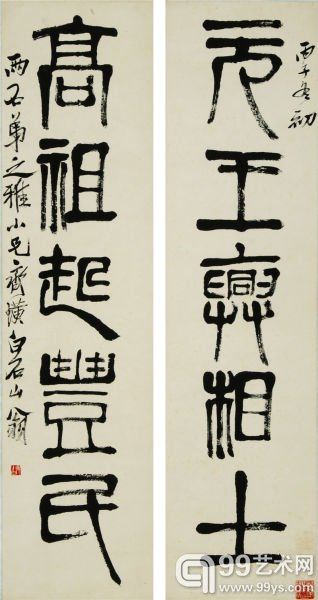 丙子冬初
元王興相土
高祖起豐民
兩石弟之雅小兄齊璜白石山翁
99艺术网
www.99ys.com